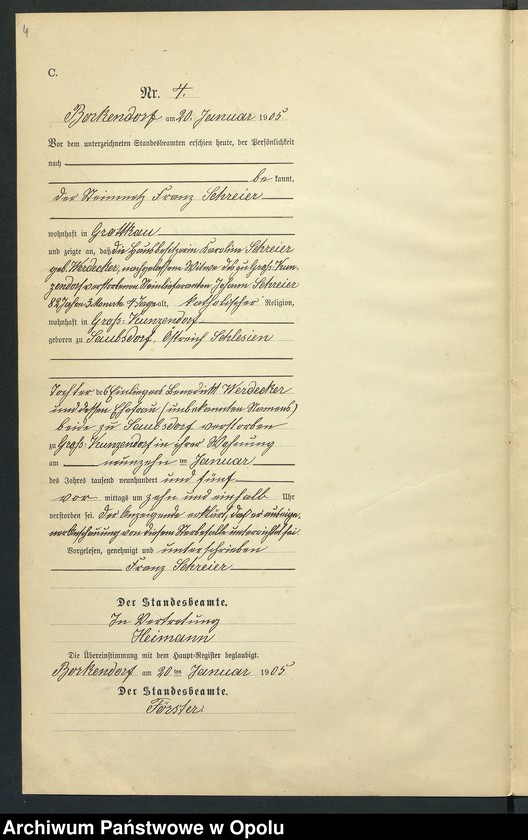 4
C.
Nr. 4.
Borkendorf am 20. Januar 1905
Vor dem unterzeichneten Standesbeamten erschien heute, der Persönlichkeit
nach
be kannt,
der Steinmetz Franz Schreier
wohnhaft in Grottkau
und zeigte an, daß die Hausbesitzerin Karoline Schreier
geb. Werdecker, nachgelassene Witwe des zu Groß-Kun-
zendorf verstorbenen Steinlieferanten Johann Schreier
82 Jahre 3 Monate 4 Tage alt, katholischer Religion,
wohnhaft in Groß-Kunzendorf
geboren zu Saubsdorf, Östreich Schlesien
Tochter des Einliegers Benedikt Werdecker
und dessen Ehefrau (unbekannten Namens)
beide zu Saubsdorf verstorben
zu Groß-Kunzendorf in ihrer Wohnung
am neunzehn ten Januar
des Jahres tausend neunhundert und fünf
vor mittags um zehn und einhalb Uhr
verstorben sei. Der Anzeigende erklärt, daß er aus eige-
ner Anschauung von diesem Sterbefalle unterrichtet sei.
Vorgelesen, genehmigt und unterschrieben
Franz Schreier
Der Standesbeamte.
In Vertretung
Heimann
Die Übereinstimmung mit dem Haupt-Register beglaubigt.
Borkendorf am 20 ten Januar 1905
Der Standesbeamte.
Förster
Archiwum Państwowe w Opolu